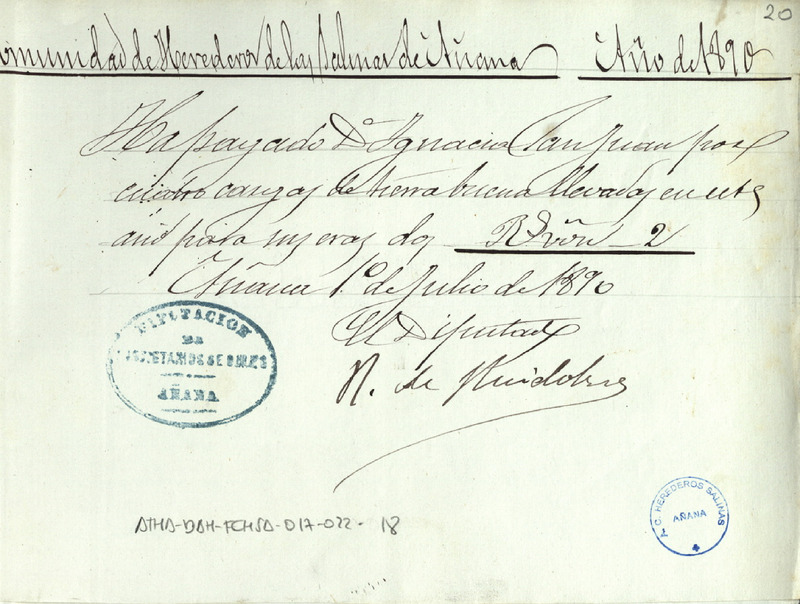 20
omunidad de Herederos de las Salinas de Añana Año de 1890
Ha payado Dn Ignacio San Juan por
cuatro cargas de tierra buena llevadas en este
año para sus eras dos Rs vón 2
Añana 1º de Julio de 1890
El Diputado
N. de Huidobro
DIPUTACION
DE
AÑANA
A.C. HEREDEROS SALINAS
AÑANA
ATHA-DAH-FCHSA-017-022-18